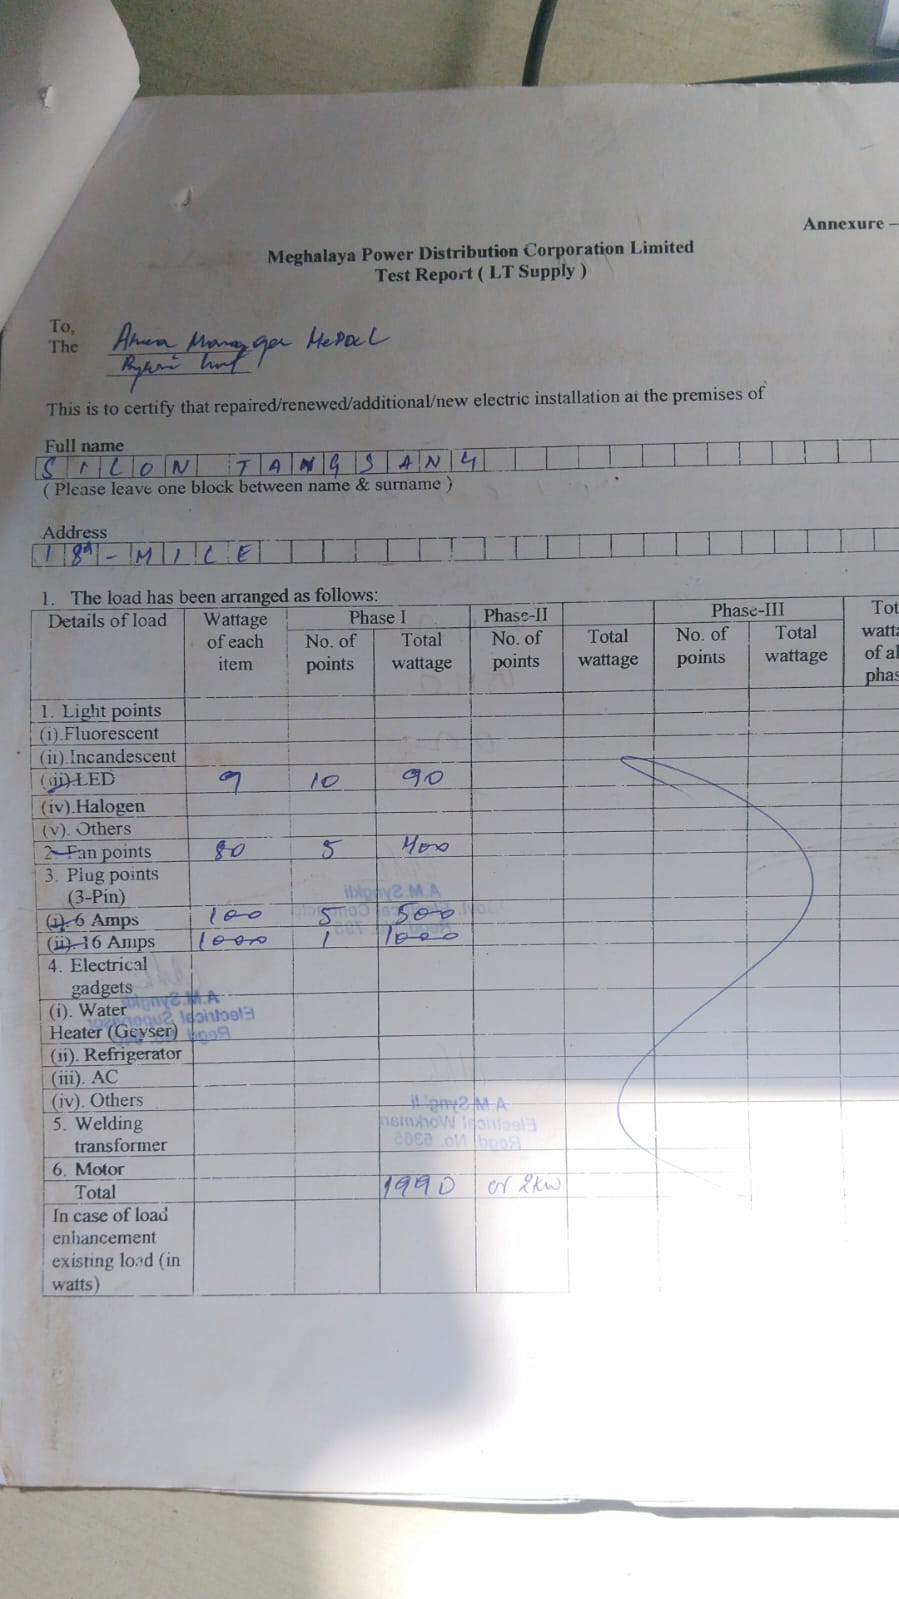 Annexure –
Meghalaya Power Distribution Corporation Limited
Test Report ( LT Supply )
To,
The Manager MePDCL
This is to certify that repaired/renewed/additional/new electric installation at the premises of
Full name
SILON TANGSANG
( Please leave one block between name & surname )
Address
18th-MILE
1. The load has been arranged as follows:
Details of load Wattage of each item Phase I No. of points Total wattage Phase-II No. of points Total wattage Phase-III No. of points Total wattage
1. Light points
(i).Fluorescent
(ii).Incandescent
(iii).LED 9 10 90
(iv).Halogen
(v). Others
2. Fan points 80 5 400
3. Plug points
(3-Pin)
(i). 6 Amps 100 5 500
(ii). 16 Amps 1000 1 1000
4. Electrical
gadgets
(i). Water
Heater (Geyser)
(ii). Refrigerator
(iii). AC
(iv). Others
5. Welding
transformer
6. Motor
Total 1990 or 2kw
In case of load
enhancement
existing load (in
watts)